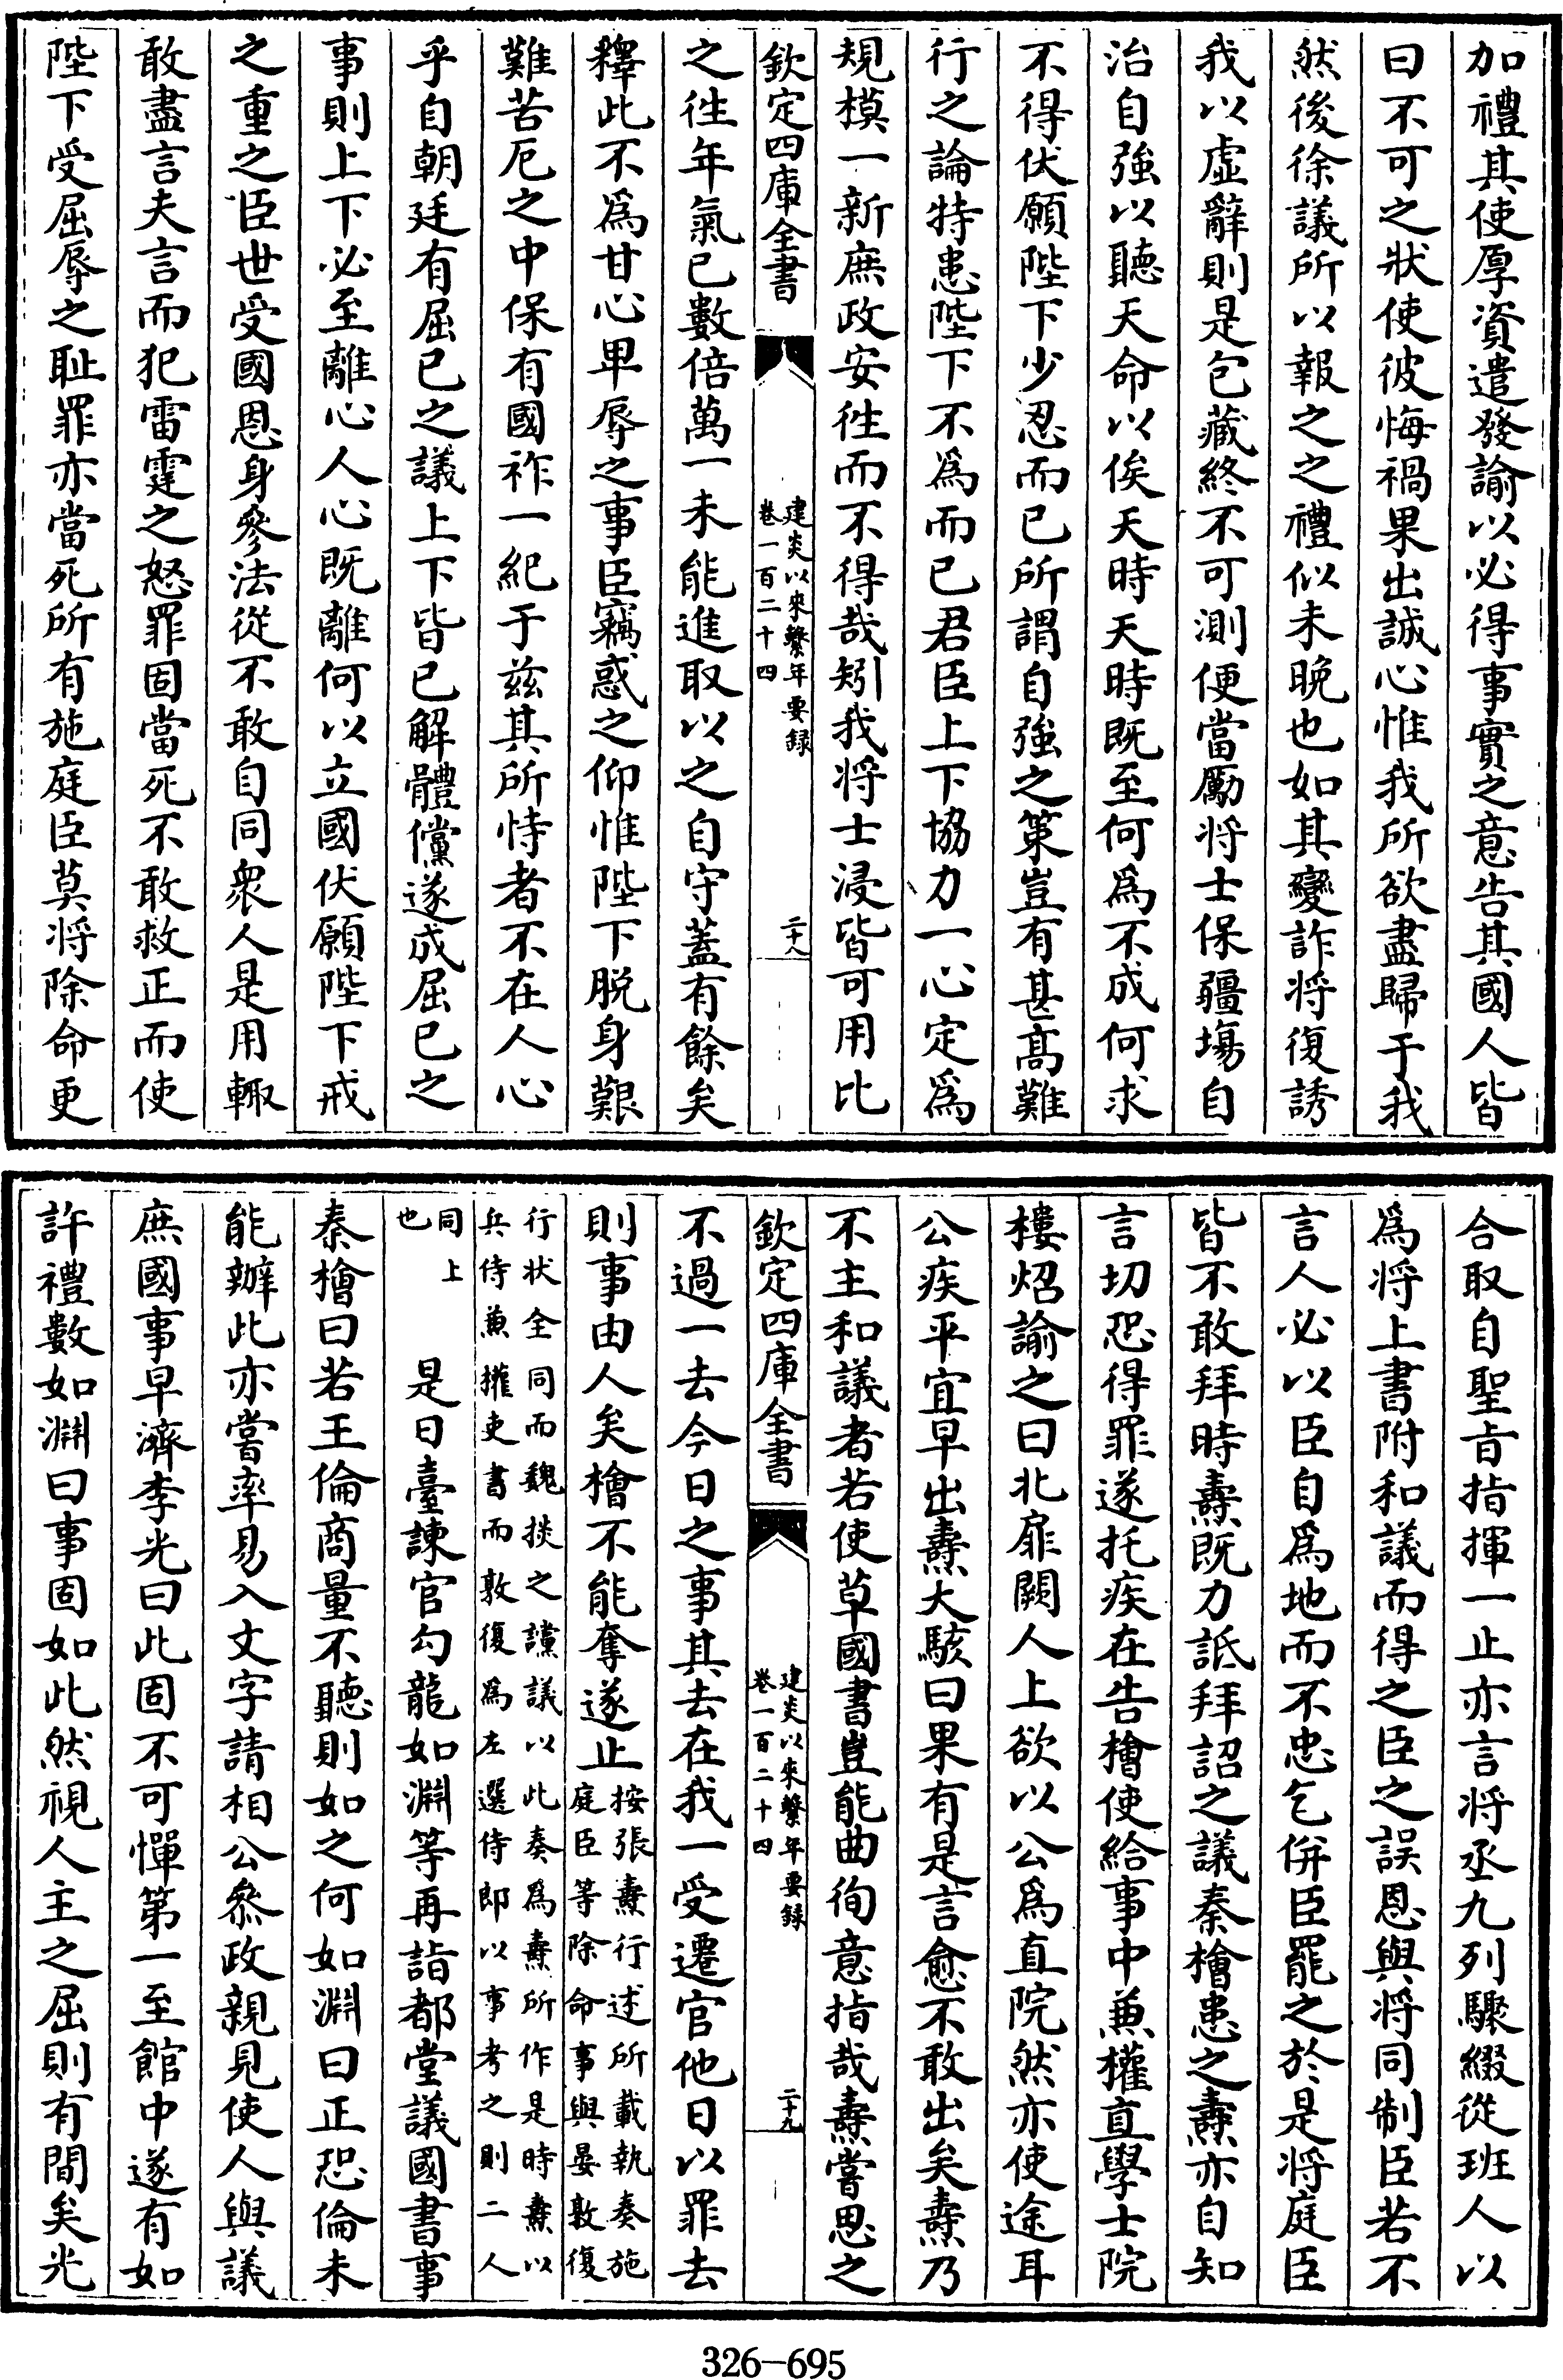 加禮其使厚資遣發諭以必得事實之意告其國人皆
曰不可之狀使彼悔禍果出誠心惟我所欲盡歸于我
然後徐議所以報之之禮似未晚也如其變詐將復誘
我以虛辭則是包藏終不可測便當勵将士保疆埸自
治自強以聽天命以俟天時天時既至何為不成何求
不得伏願陛下少忍而已所謂自強之策豈有甚髙難
行之論特患陛下不為而已君臣上下協力一心定為
規模一新庶政安往而不得哉矧我将士浸皆可用比
欽定四庫全書
建炎以來繫年要録
卷一百二十四
二十八
之往年氣已數倍萬一未能進取以之自守蓋有餘矣
釋此不為甘心卑辱之事臣竊惑之仰惟陛下脱身艱
難苦厄之中保有國祚一紀于兹其所恃者不在人心
乎自朝廷有屈已之議上下皆已解體儻遂成屈已之
事則上下必至離心人心既離何以立國伏願陛下戒
之重之臣世受國恩身參法從不敢自同衆人是用輙
敢盡言夫言而犯雷霆之怒罪固當死不敢救正而使
陛下受屈辱之耻罪亦當死所有施庭臣莫将除命更
合取自聖旨指揮一止亦言将丞九列驟綴從班人以
為将上書附和議而得之臣之誤恩與将同制臣若不
言人必以臣自為地而不忠乞併臣罷之於是将庭臣
皆不敢拜時燾既力詆拜詔之議秦檜患之燾亦自知
言切恐得罪遂托疾在告檜使給事中兼權直學士院
樓炤諭之曰北扉闕人上欲以公為直院然亦使途耳
公疾平宜早出燾大駭曰果有是言愈不敢出矣燾乃
不主和議者若使草國書豈能曲徇意指哉燾嘗思之
欽定四庫全書
建炎以來繫年要録
卷一百二十四
二十九
不過一去今日之事其去在我一受遷官他日以罪去
則事由人矣檜不能奪遂止按張燾行述所載執奏施
庭臣等除命事與晏敦復
行状全同而魏掞之讜議以此奏為燾所作是時燾以
兵侍兼權吏書而敦復為左選侍郎以事考之則二人
同上
也
是日臺諫官勾龍如淵等再詣都堂議國書事
秦檜曰若王倫商量不聽則如之何如淵曰正恐倫未
能辦此亦嘗率易入文字請相公叅政親見使人與議
庶國事早濟李光曰此固不可憚第一至館中遂有如
許禮數如淵曰事固如此然視人主之屈則有間矣光
326-695